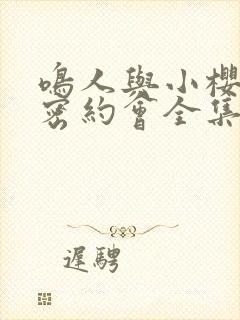 鳴人與小櫻
密約會全集
遲騁